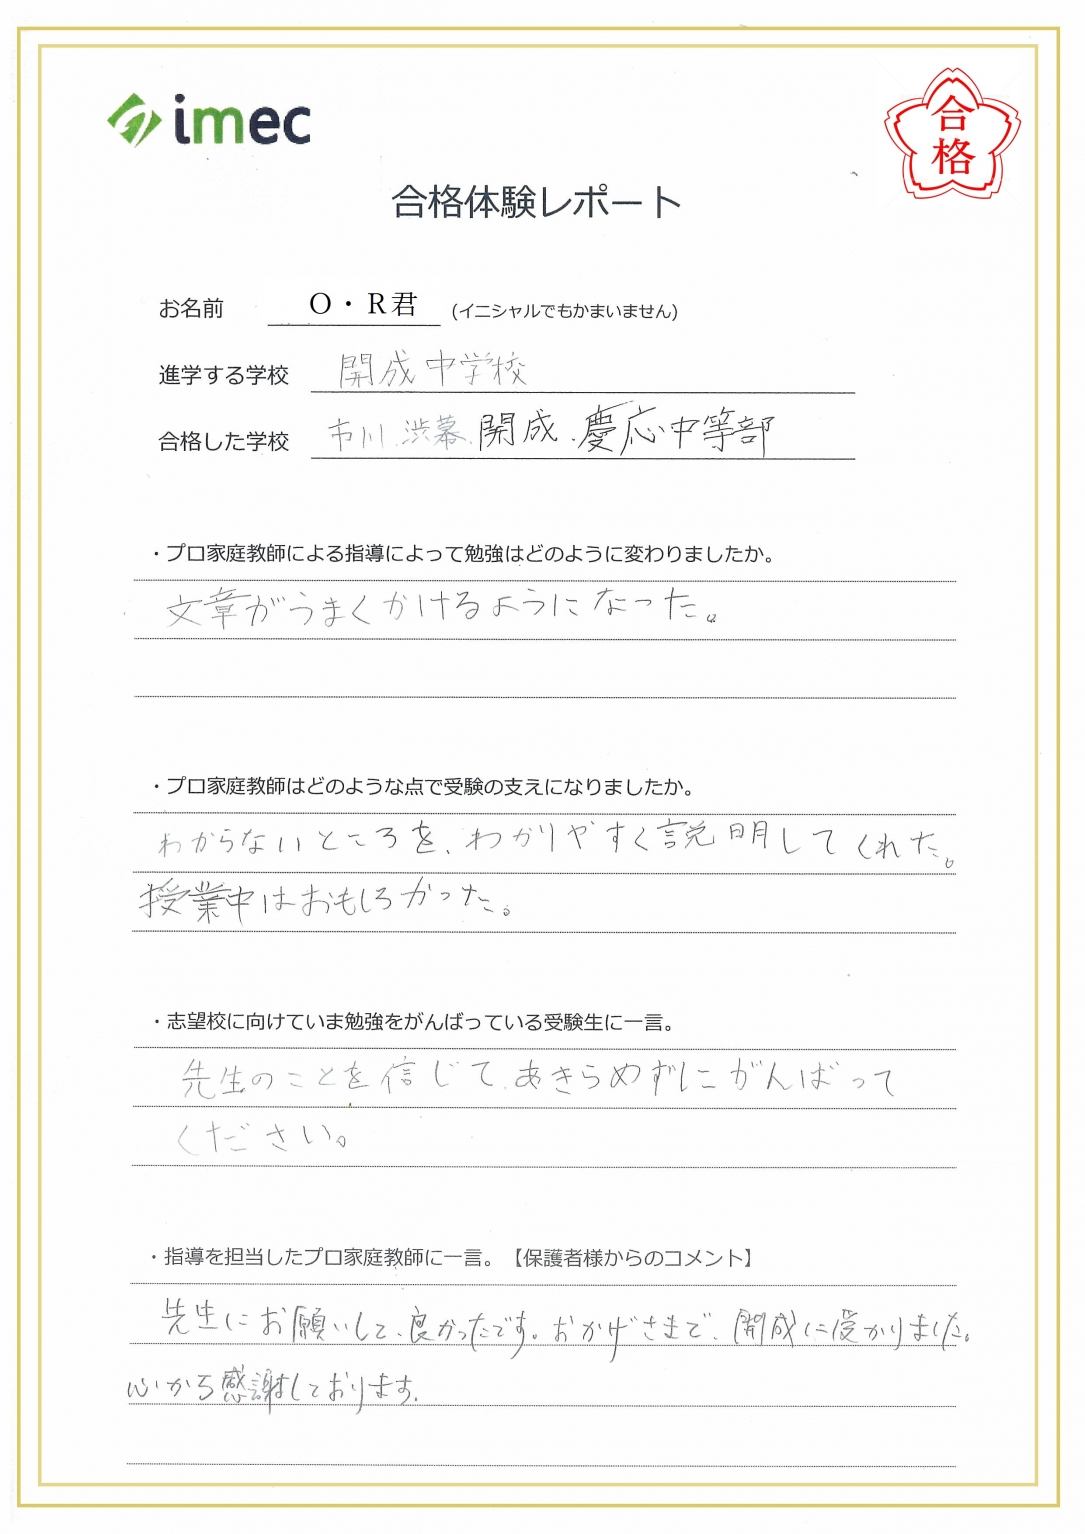 imec
合格
合格体験レポート
お名前 O・R君 (イニシャルでもかまいません)
進学する学校 開成中学校
合格した学校 市川、渋幕、開成、慶応中等部
・プロ家庭教師による指導によって勉強はどのように変わりましたか。
文章がうまくかけるようになった。
・プロ家庭教師はどのような点で受験の支えになりましたか。
わからないところを、わかりやすく説明してくれた。
授業中はおもしろかった。
・志望校に向けていま勉強をがんばっている受験生に一言。
先生のことを信じて、あきらめずにがんばって
ください。
・指導を担当したプロ家庭教師に一言。【保護者様からのコメント】
先生にお願いして、良かったです。おかげさまで、開成に受かりました。
心から感謝しております。